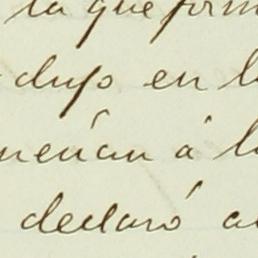 la que form
dijo en l
necian á l
declaró a